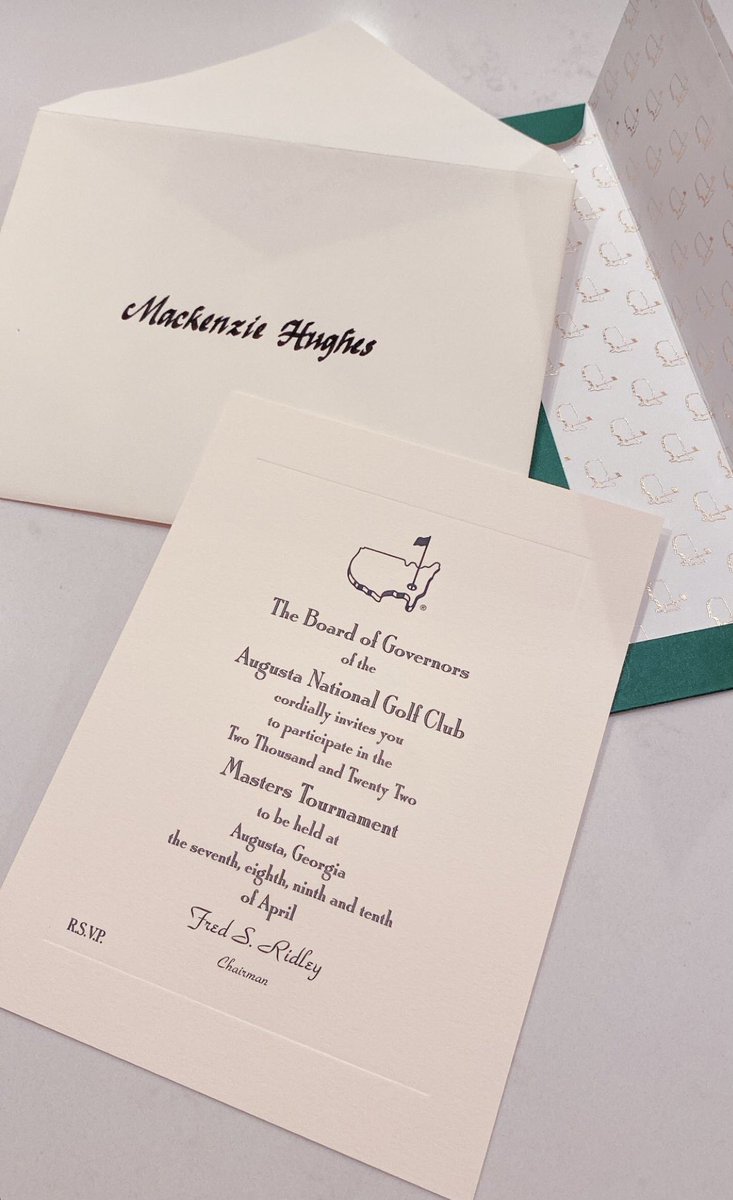 Mackenzie Hughes
®
The Board of Governors
of the
Augusta National Golf Club
cordially invites you
to participate in the
Two Thousand and Twenty Two
Masters Tournament
to be held at
Augusta, Georgia
the seventh, eighth, ninth and tenth
of April
Fred S. Ridley
Chairman
R.S.V.P.